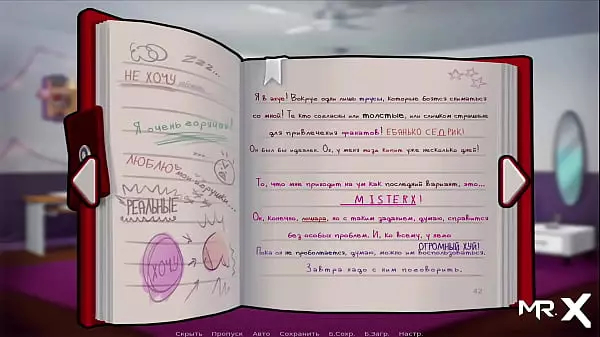 Zzz...
НЕ ХОЧУ
Я очень горячая!
ЛЮБЛЮ
мои игрушки...
РЕАЛЬНЫЕ
ХОЧУ
Я в ахуе! Вокруг одни лишь трусы, которые боятся сниматься
со мной! Те кто согласны или толстые, или слишком страшные
для привлечения фанатов! ЕБАНЬКО СЕДРИК!
Он был бы идеален. Ох, у меня пизда кипит уже несколько дней!
То, что мне приходит на ум как последний вариант, это...
MISTERX!
Ок, конечно, лошара, но с таким заданием, думаю, справится
без особых проблем. И, ко всему, у него
ОГРОМНЫЙ ХУЙ!
Пока он не проболтается, думаю, можно им воспользоваться.
Завтра надо с ним поговорить.
42
MR.X
Скрыть Пропуск Авто Сохранить Б.Сохр. Б.Загр. Настр.